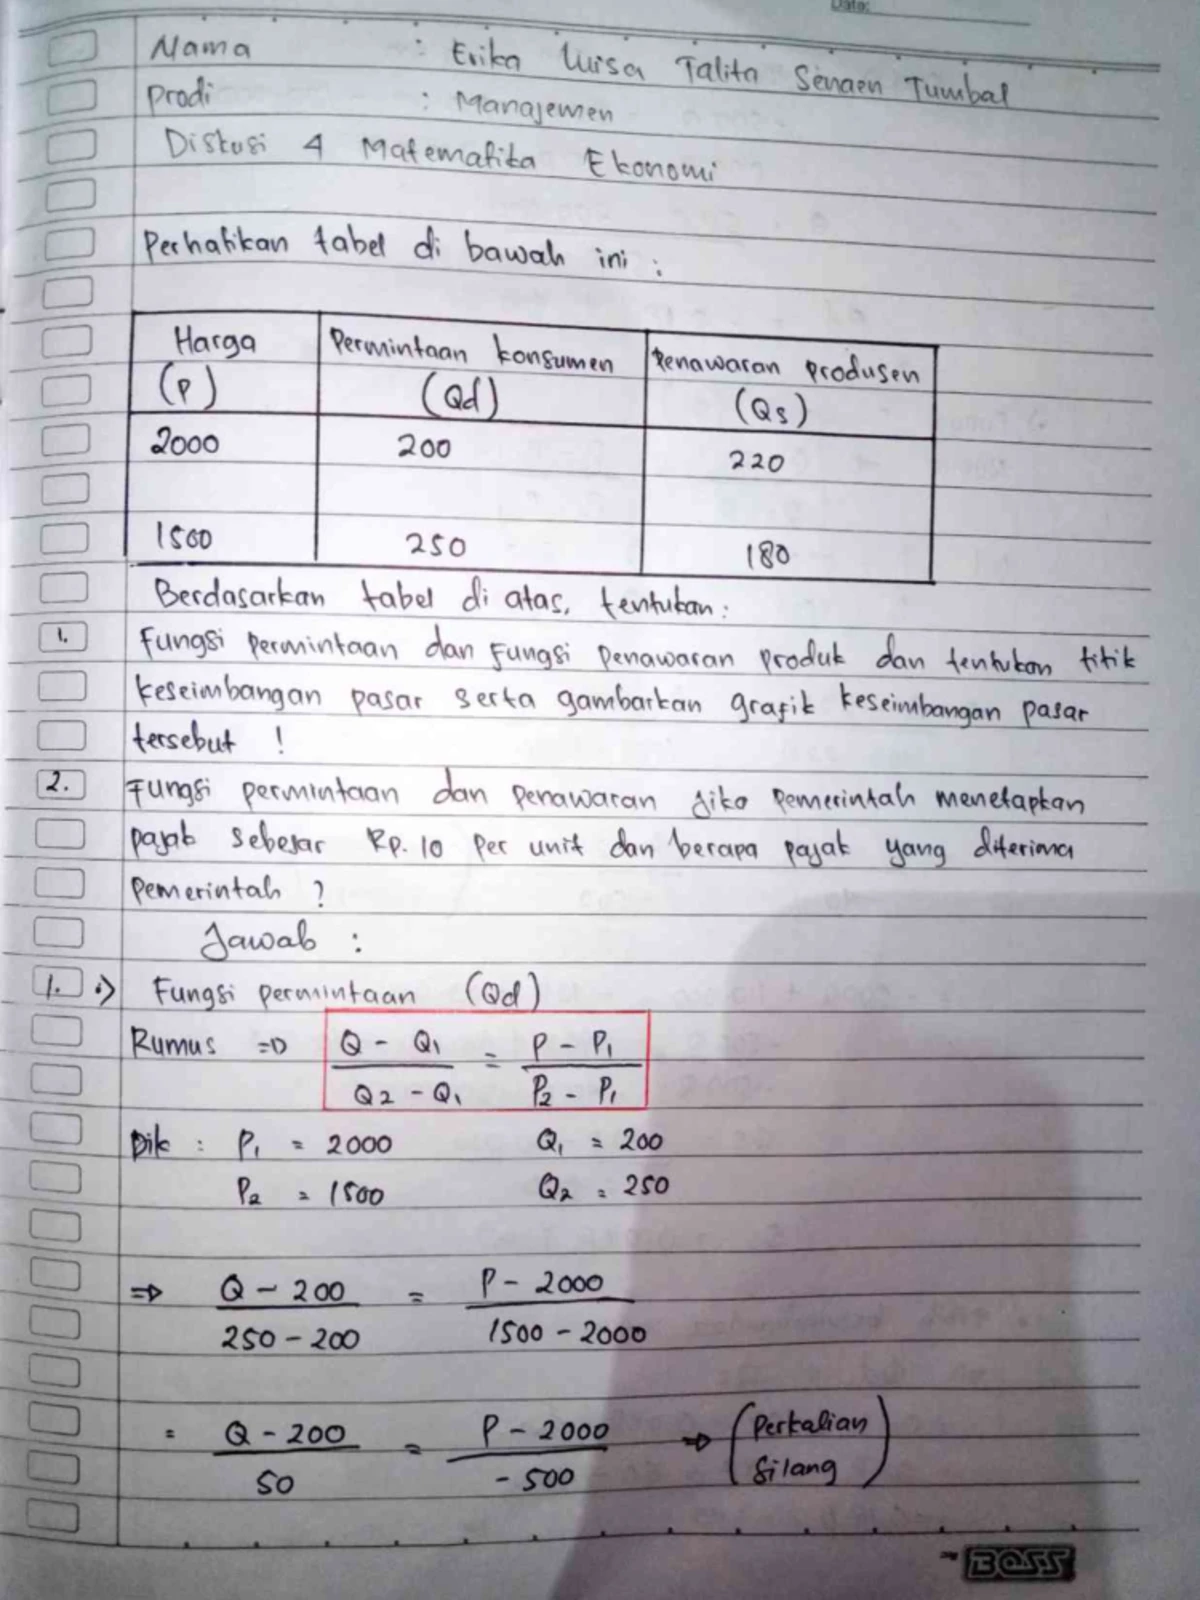 Date:
Nama : Erika Luisa Talita Senaen Tumbal
Prodi : Manajemen
Diskusi 4 Matematika Ekonomi
Perhatikan tabel di bawah ini :
Harga (P) Permintaan konsumen (Qd) Penawaran produsen (Qs)
2000 200 220
1500 250 180
Berdasarkan tabel di atas, tentukan :
1. Fungsi permintaan dan fungsi penawaran produk dan tentukan titik
keseimbangan pasar serta gambarkan grafik keseimbangan pasar
tersebut !
2. Fungsi permintaan dan penawaran jika pemerintah menetapkan
pajak sebesar Rp. 10 per unit dan berapa pajak yang diterima
pemerintah ?
Jawab :
1. •) Fungsi permintaan (Qd)
Rumus => Q - Q₁ / Q₂ - Q₁ = P - P₁ / P₂ - P₁
Dik : P₁ = 2000 Q₁ = 200
P₂ = 1500 Q₂ = 250
=> Q - 200 / 250 - 200 = P - 2000 / 1500 - 2000
= Q - 200 / 50 = P - 2000 / - 500 => (Perkalian Silang)
BOSS